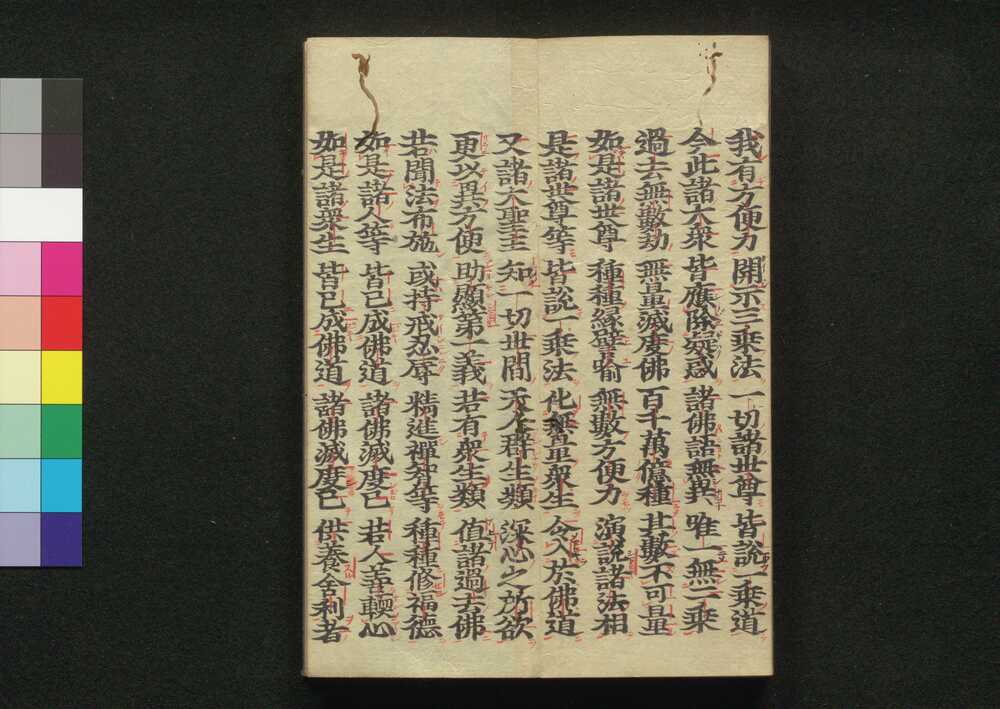 我有方便力 開示三乗法 一切諸世尊 皆説一乗道
今此諸大衆 皆應除疑惑 諸佛語無異 唯一無二乗
過去無數劫 無量滅度佛 百千萬億種 其數不可量
如是諸世尊 種種縁譬喻 無數方便力 演説諸法相
是諸世尊等 皆説一乗法 化無量衆生 令入於佛道
又諸大聖主 知一切世間 天人群生類 深心之所欲
更以異方便 助顯第一義 若有衆生類 值諸過去佛
若聞法布施 或持戒忍辱 精進禪智等 種種修福德
如是諸人等 皆已成佛道 諸佛滅度已 若人善輭心
如是諸衆生 皆已成佛道 諸佛滅度已 供養舍利者